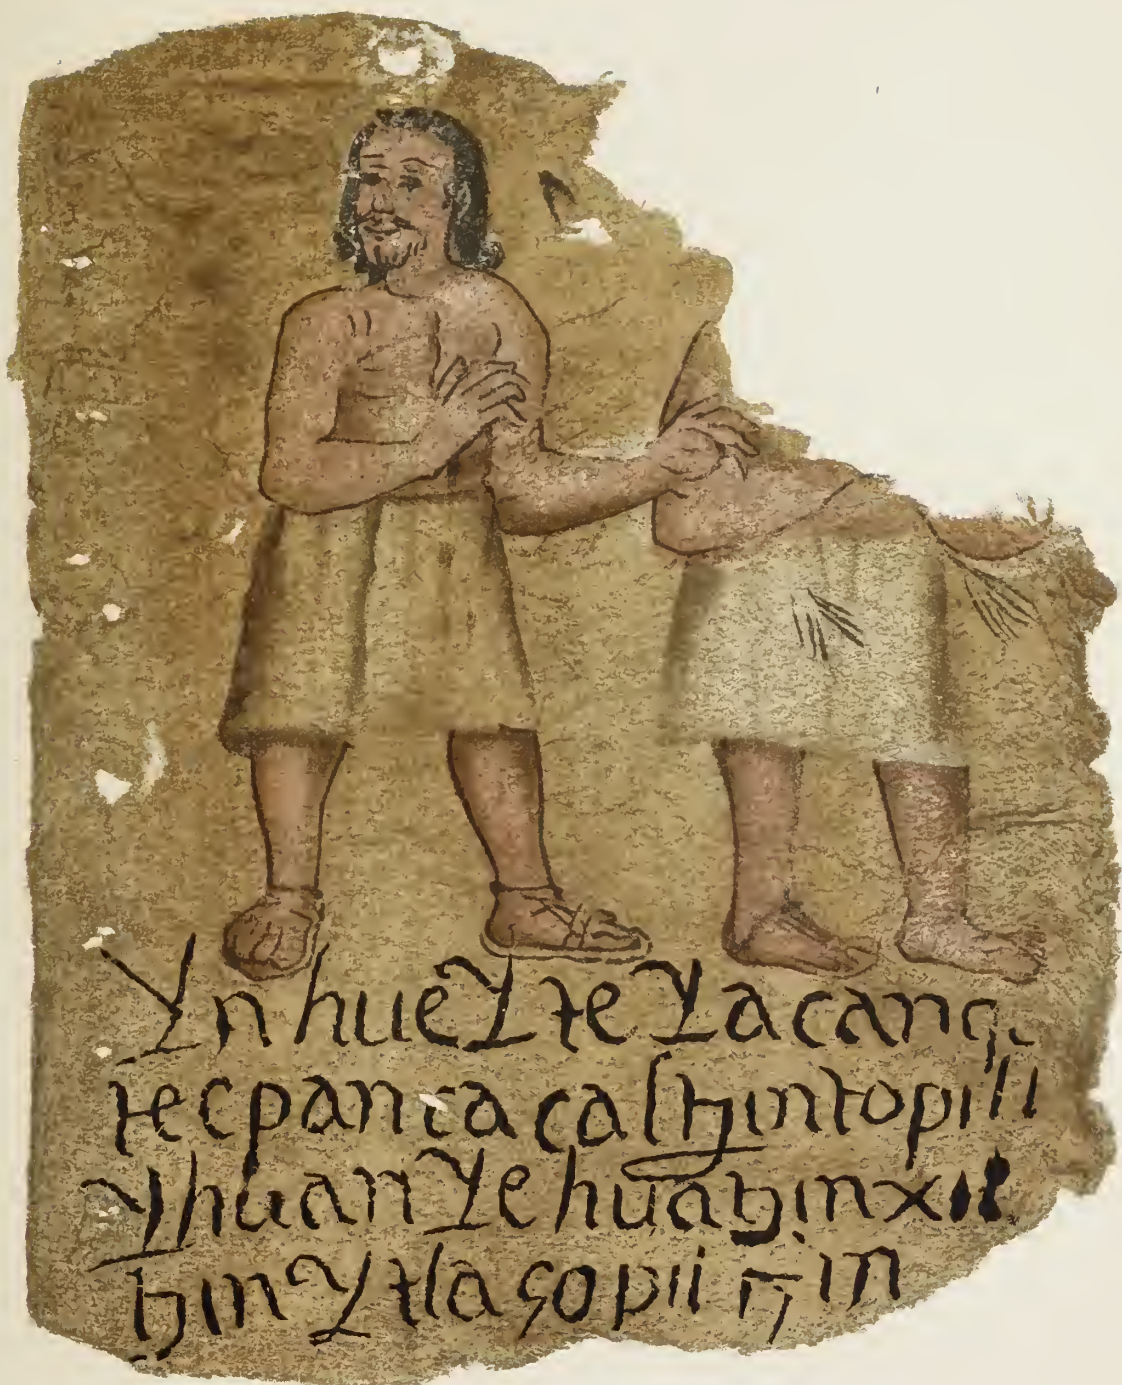 Yn hueY te Yacanq.
tecpantacaltzintopili
Yhuan Yehuatzin xil
tzin Ytlaçopiitzin